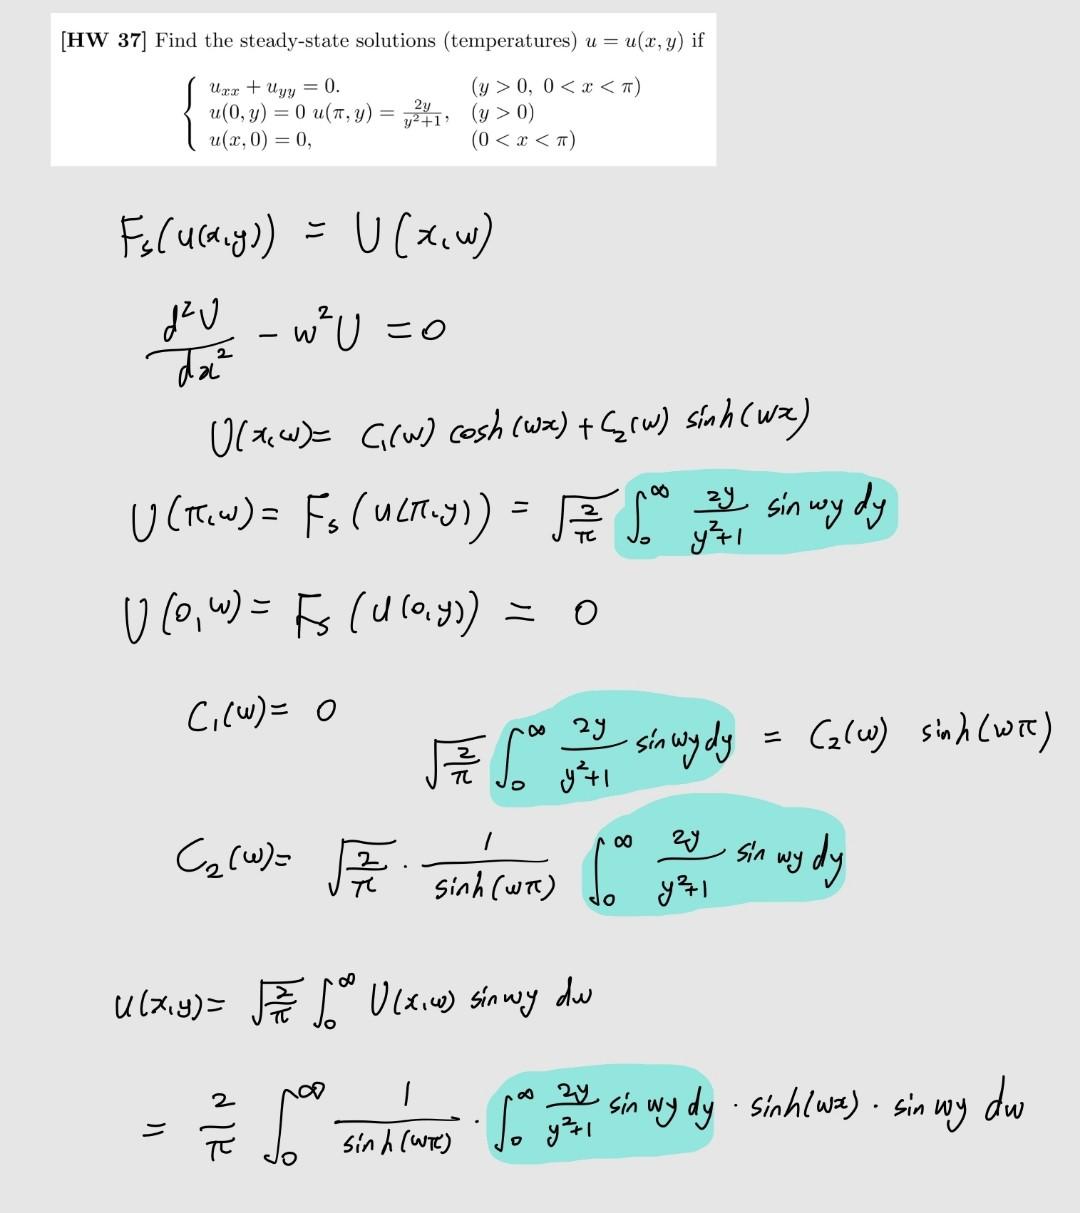 [HW 37] Find the steady-state solutions (temperatures) u = u(x, y) if
u_xx + u_yy = 0. (y > 0, 0 < x < π)
u(0, y) = 0 u(π, y) = 2y/(y²+1), (y > 0)
u(x, 0) = 0, (0 < x < π)
F_s(u(x,y)) = U(x,w)
d²U/dx² - w²U = 0
U(x,w) = C₁(w) cosh(wx) + C₂(w) sinh(wx)
U(π,w) = F_s(u(π,y)) = √(2/π) ∫₀^∞ 2y/(y²+1) sin wy dy
U(0,w) = F_s(u(0,y)) = 0
C₁(w) = 0
√(2/π) ∫₀^∞ 2y/(y²+1) sin wy dy = C₂(w) sinh(wπ)
C₂(w) = √(2/π) · 1/sinh(wπ) ∫₀^∞ 2y/(y²+1) sin wy dy
u(x,y) = √(2/π) ∫₀^∞ U(x,w) sin wy dw
= 2/π ∫₀^∞ 1/sinh(wπ) · ∫₀^∞ 2y/(y²+1) sin wy dy · sinh(wx) · sin wy dw